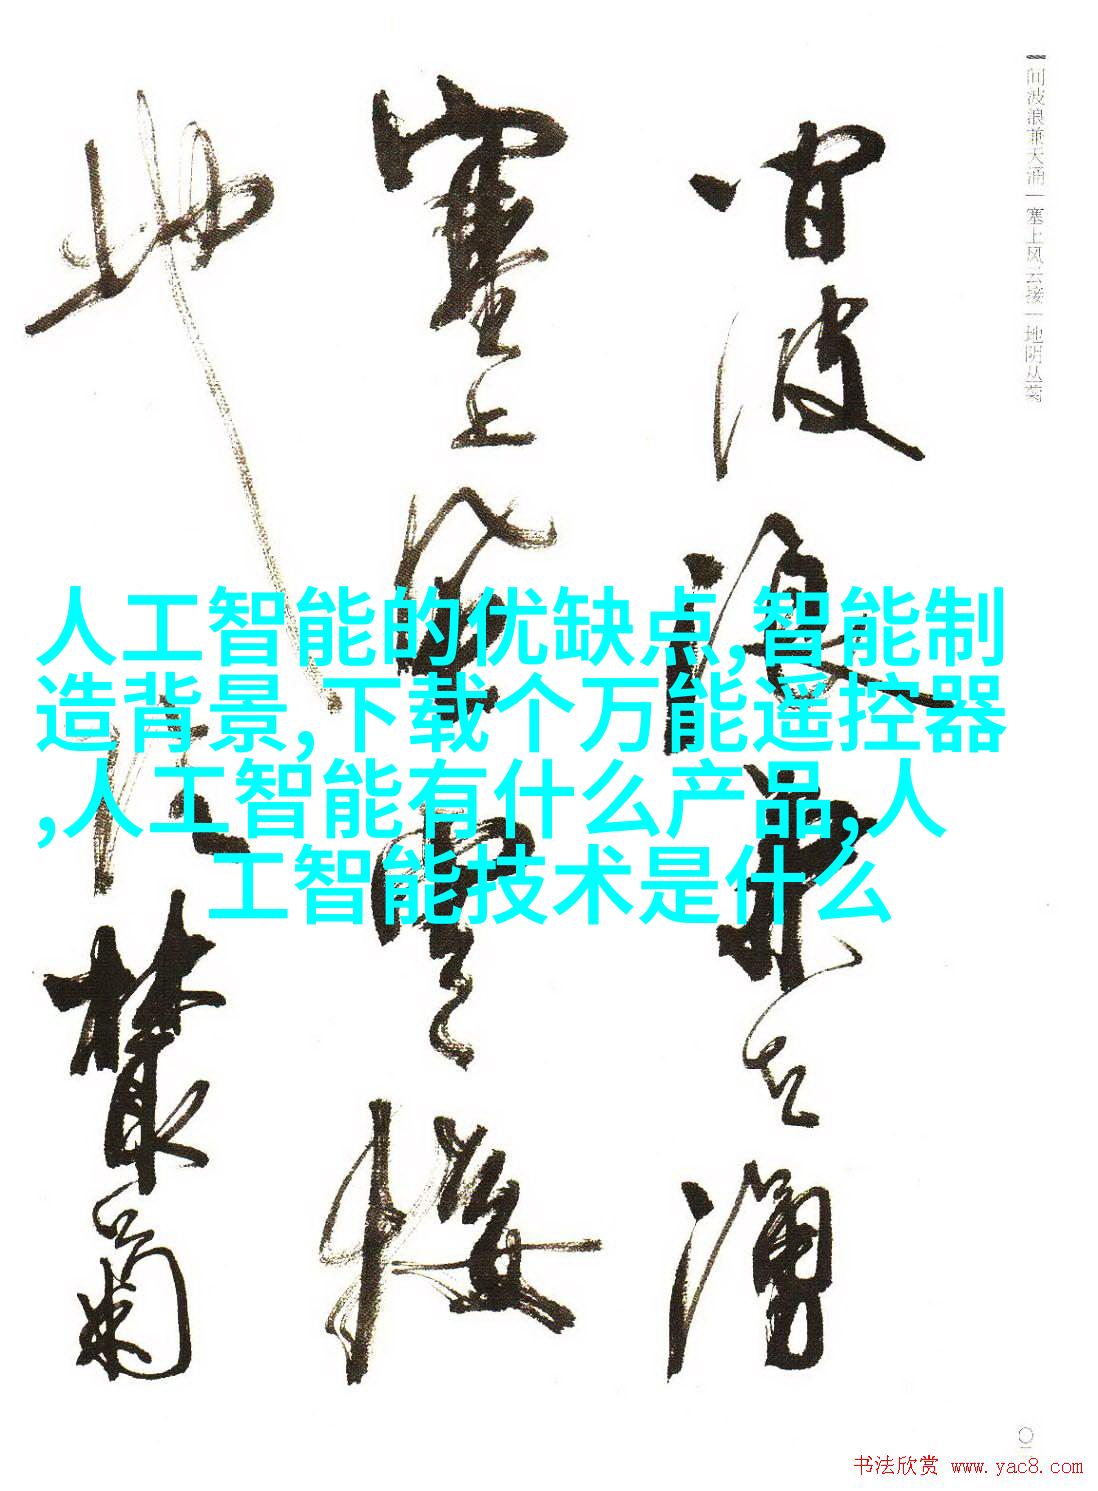 间波浪兼天涌｜塞上风云接｜地阴丛菊
间波浪兼天涌
塞上风云接
地阴丛菊
人工智能的优缺点,智能制
造背景,下载个万能遥控器
,人工智能有什么产品,人
工智能技术是什么
书法欣赏 www.yac8.com